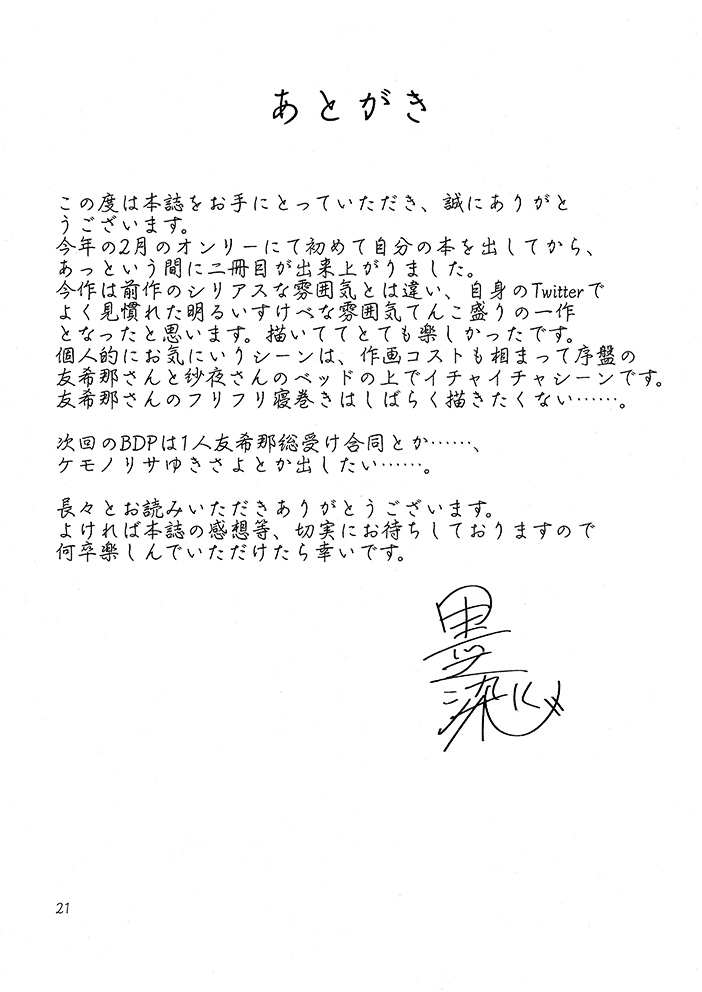 あとがき
この度は本誌をお手にとっていただき、誠にありがと
うございます。
今年の2月のオンリーにて初めて自分の本を出してから、
あっという間に二冊目が出来上がりました。
今作は前作のシリアスな雰囲気とは違い、自身のTwitterで
よく見慣れた明るいすけべな雰囲気てんこ盛りの一作
となったと思います。描いててとても楽しかったです。
個人的にお気にいりシーンは、作画コストも相まって序盤の
友希那さんと紗夜さんのベッドの上でイチャイチャシーンです。
友希那さんのフリフリ寝巻きはしばらく描きたくない……。
次回のBDPは1人友希那総受け合同とか……、
ケモノリサゆきさよとか出したい……。
長々とお読みいただきありがとうございます。
よければ本誌の感想等、切実にお待ちしておりますので
何卒楽しんでいただけたら幸いです。
墨染
21